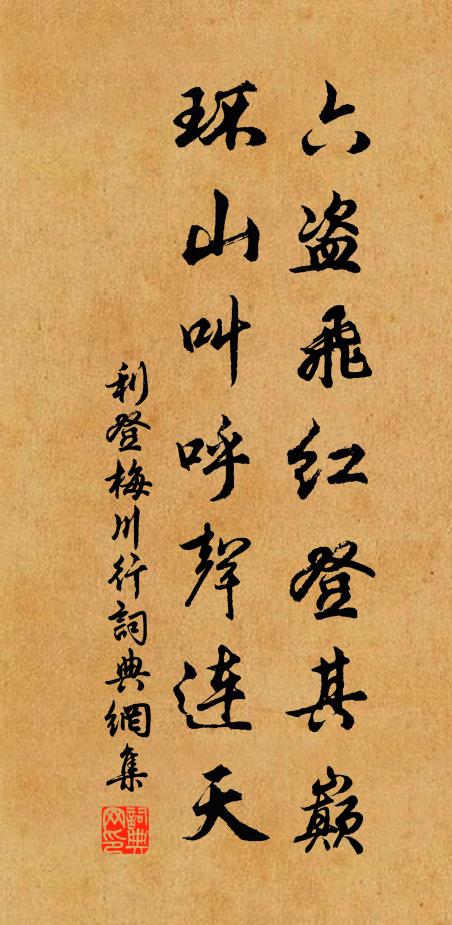 六盗飛红登其巔
环山叫呼聲連天
利登梅川行詞典網集
詞典网印